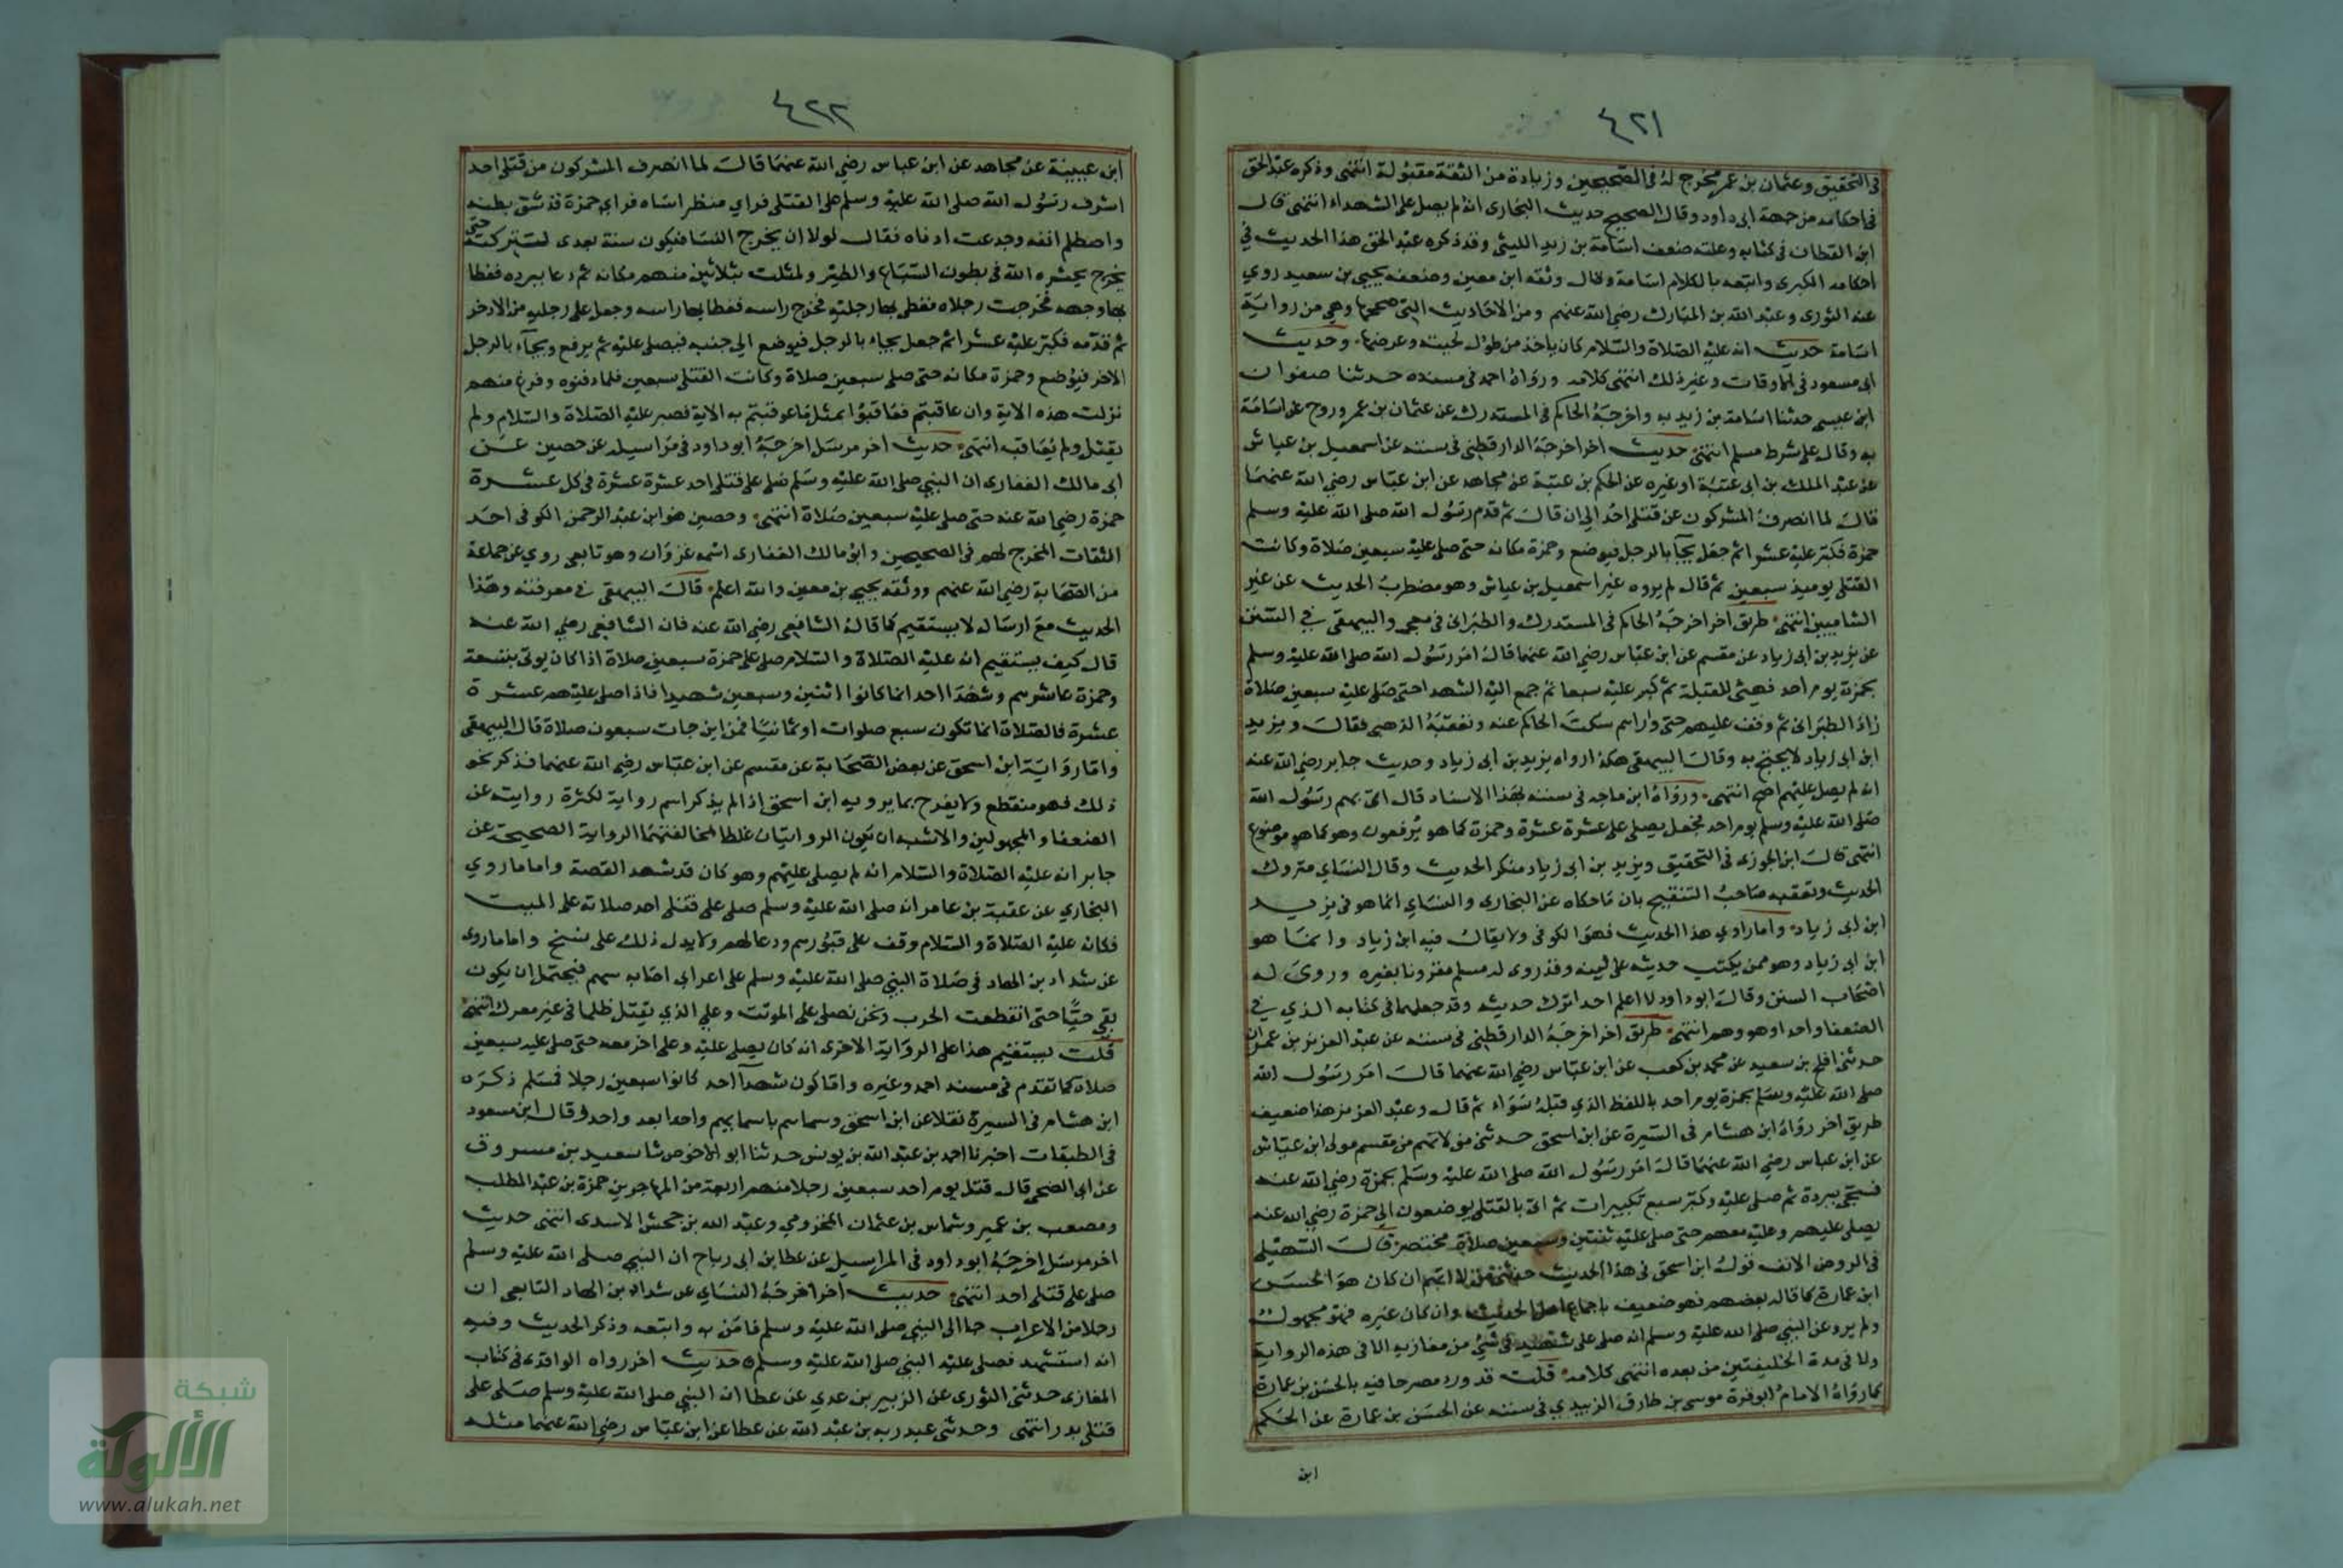 ٤٢١
في التحقيق وعثمان بن عمر مخرج له في الصحيحين وزيادة من الثقة مقبولة انتهى وذكره عبد الحق
في احكامه من جهة ابي داود وقال الصحيح حديث البخاري انه لم يصل على الشهداء انتهى قال
ابن القطان في كتابه وعلته ضعف اسامة بن زيد الليثي وقد ذكره عبد الحق هذا الحديث في
احكامه الكبرى واتبعه بالكلام اسامة وقال وثقه ابن معين وضعفه يحيى بن سعيد روي
عنه الثوري وعبد الله بن المبارك رضي الله عنهم ومن الاحاديث التي صححها وهي من رواية
اسامة حديث انه عليه الصلاة والسلام كان ياخذ من طول لحيته وعرضها، وحديث
ابي مسعود في الاوقات وغير ذلك انتهى كلامه ورواه احمد في مسنده حدثنا صفوان
ابن عيسى حدثنا اسامة بن زيد به واخرجه الحاكم في المستدرك عن عثمان بن عمر وروح عن اسامة
به وقال على شرط مسلم انتهى حديث اخر اخرجه الدارقطني في سننه عن اسمعيل بن عياش
عن عبد الملك بن ابي عتبة او غيره عن الحكم بن عتبة عن مجاهد عن ابن عباس رضي الله عنهما
قال لما انصرف المشركون عن قتلى احد الى ان قال ثم قدم رسول الله صلى الله عليه وسلم
حمزة فكبر عليه عشرا ثم جعل يجا بالرجل فيوضع وحمزة مكانه حتى صلى عليه سبعين صلاة وكانت
القتلى يوميذ سبعين ثم قال لم يروه غير اسمعيل بن عياش وهو مضطرب الحديث عن غير
الشاميين انتهى طريق اخر اخرجه الحاكم في المستدرك والطبراني في معجمه والبيهقي في السنن
عن يزيد بن ابي زياد عن مقسم عن ابن عباس رضي الله عنهما قال امر رسول الله صلى الله عليه وسلم
بحمزة يوم احد فهيئ للقبلة ثم كبر عليه سبعا ثم جمع اليه الشهدا حتى صلى عليه سبعين صلاة
زاد الطبراني ثم وقف عليهم حتى واراهم سكت الحاكم عنه وتعقبه الذهبي فقال ويزيد
ابن ابي زياد لا يحتج به وقال البيهقي هكذا رواه يزيد بن ابي زياد وحديث جابر رضي الله عنه
انه لم يصل عليهم اصح انتهى ورواه ابن ماجه في سننه بهذا الاسناد قال اتى بهم رسول الله
صلى الله عليه وسلم يوم احد فجعل يصلي على عشرة عشرة وحمزة كما هو يرفعون وهو كما هو موضوع
انتهى قال ابن الجوزي في التحقيق ويزيد بن ابي زياد منكر الحديث وقال النساي متروك
الحديث وتعقبه صاحب التنقيح بان ما حكاه عن البخاري والنساي انما هو في يزيد
ابن ابي زياد واما راوي هذا الحديث فهو الكوفي ولا يقال فيه ابن زياد وانما هو
ابن ابي زياد وهو ممن يكتب حديثه على لينه وقد روى له مسلم مقرونا بغيره وروى له
اصحاب السنن وقال ابو داود لا اعلم احدا ترك حديثه وقد جعلهما في كتابه الذي في
الضعفا واحدا وهو وهم انتهى طريق اخر اخرجه الدارقطني في سننه عن عبد العزيز بن عمران
حدثني افلح بن سعيد عن محمد بن كعب عن ابن عباس رضي الله عنهما قال امر رسول الله
صلى الله عليه وسلم بحمزة يوم احد باللفظ الذي قبله سواء ثم قال وعبد العزيز هذا ضعيف
طريق اخر رواه ابن هشام في السيرة عن ابن اسحق حدثني من لا اتهم من مقسم مولى ابن عباس
عن ابن عباس رضي الله عنهما قال امر رسول الله صلى الله عليه وسلم بحمزة رضي الله عنه
فسجي ببردة ثم صلى عليه وكبر سبع تكبيرات ثم اتى بالقتلى يوضعون الى حمزة رضي الله عنه
يصلي عليهم وعليه معهم حتى صلى عليه ثنتين وسبعين صلاة مختصر قال السهيلي
في الروض الانف قول ابن اسحق في هذا الحديث حدثني من لا اتهم ان كان هو الحسن
ابن عمارة كما قاله بعضهم فهو ضعيف باجماع اهل الحديث وان كان غيره فهو مجهول
ولم يرو عن النبي صلى الله عليه وسلم انه صلى على شهيد في شيء من مغازيه الا في هذه الرواية
ولا في مدة الخليفتين من بعده انتهى كلامه قلت قد ورد مصرحا فيه بالحسن بن عمارة
كما رواه الامام ابو قرة موسى بن طارق الزبيدي في سننه عن الحسن بن عمارة عن الحكم
ابن
٤٢٢
ابن عيينة عن مجاهد عن ابن عباس رضي الله عنهما قال لما انصرف المشركون من قتلى احد
اشرف رسول الله صلى الله عليه وسلم على القتلى فراي منظرا ساه فراي حمزة قد شق بطنه
واصطلم انفه وجدعت اذناه فقال لولا ان يخرج النسا فيكون سنة بعدي لتركته حتى
يخرج يحشره الله في بطون السباع والطير ولمثلت بثلاثين منهم مكانه ثم دعا ببرده فغطا
بها وجهه فخرجت رجلاه فغطى بها رجليه فخرج راسه فغطا بها راسه وجعل على رجليه من الاذخر
ثم قدمه فكبر عليه عشرا ثم جعل يجاء بالرجل فيوضع الى جنبه فيصلي عليه ثم يرفع ويجآء بالرجل
الاخر فيوضع وحمزة مكانه حتى صلى سبعين صلاة وكانت القتلى سبعين فلما دفنوه وفرغ منهم
نزلت هذه الاية وان عاقبتم فعاقبوا بمثل ما عوقبتم به الاية فصبر عليه الصلاة والسلام ولم
يقتل ولم يعاقب انتهى حديث اخر مرسل اخرجه ابو داود في مراسيله عن حصين عن
ابي مالك الغفاري ان النبي صلى الله عليه وسلم صلى على قتلى احد عشرة عشرة في كل عشرة
حمزة رضي الله عنه حتى صلى عليه سبعين صلاة انتهى وحصين هو ابن عبد الرحمن الكوفي احد
الثقات المخرج لهم في الصحيحين وابو مالك الغفاري اسمه غزوان وهو تابعي روي عن جماعة
من الصحابة رضي الله عنهم ووثقه يحيى بن معين والله اعلم قال البيهقي في معرفته وهذا
الحديث مع ارساله لا يستقيم كما قاله الشافعي رضي الله عنه فان الشافعي رضي الله عنه
قال كيف يستقيم انه عليه الصلاة والسلام صلى على حمزة سبعين صلاة اذا كان يوتى بتسعة
وحمزة عاشرهم وشهدا احد انما كانوا اثنين وسبعين شهيدا فاذا صلى عليهم عشرة
عشرة فالصلاة انما تكون سبع صلوات او ثمانيا فمن اين جات سبعون صلاة قال البيهقي
واما رواية ابن اسحق عن بعض الصحابة عن مقسم عن ابن عباس رضي الله عنهما فذكر نحو
ذلك فهو منقطع ولا يفرح بما يرويه ابن اسحق اذا لم يذكر اسم رواية لكثرة روايته عن
الضعفا والمجهولين والاشبه ان يكون الروايتان غلطا لمخالفتهما الرواية الصحيحة عن
جابر انه عليه الصلاة والسلام انه لم يصلي عليهم وهو كان قد شهد القصة واما ما روي
البخاري عن عقبة بن عامر انه صلى الله عليه وسلم صلى على قتلى احد صلاته على الميت
فكانه عليه الصلاة والسلام وقف على قبورهم ودعا لهم ولا يدل ذلك على نسخ واما ما روى
عن شداد بن الهاد في صلاة النبي صلى الله عليه وسلم على اعرابي اصابه سهم فيحتمل ان يكون
بقي حيا حتى انقطعت الحرب ونحن نصلي على الموتث وعلى الذي يقتل ظلما في غير معرك انتهى
قلت يستقيم هذا على الرواية الاخرى انه كان يصلي عليه وعلى اخر معه حتى صلى عليه سبعين
صلاة كما تقدم في مسند احمد وغيره واما كون شهدآ احد كانوا سبعين رجلا فمسلم ذكره
ابن هشام في السيرة نقلا عن ابن اسحق وسماهم باسمايهم واحدا بعد واحد وقال ابن مسعود
في الطبقات اخبرنا احمد بن عبد الله بن يونس حدثنا ابو الاخوص ثنا سعيد بن مسروق
عن ابي الضحى قال قتل يوم احد سبعين رجلا منهم اربعة من المهاجرين حمزة بن عبد المطلب
ومصعب بن عمير وشماس بن عثمان المخزومي وعبد الله بن جحش الاسدي انتهى حديث
اخر مرسل اخرجه ابو داود في المراسيل عن عطا بن ابي رباح ان النبي صلى الله عليه وسلم
صلى على قتلى احد انتهى حديث اخر اخرجه النساي عن شداد بن الهاد التابعي ان
رجلا من الاعراب جا الى النبي صلى الله عليه وسلم فامن به واتبعه وذكر الحديث وفيه
انه استشهد فصلى عليه النبي صلى الله عليه وسلم حديث اخر رواه الواقدي في كتاب
المغازي حدثني الثوري عن الزبير بن عدي عن عطا ان النبي صلى الله عليه وسلم صلى على
قتلى بدر انتهى وحدثني عبد ربه بن عبد الله عن عطا عن ابن عباس رضي الله عنهما مثله
شبكة
الألوكة
www.alukah.net